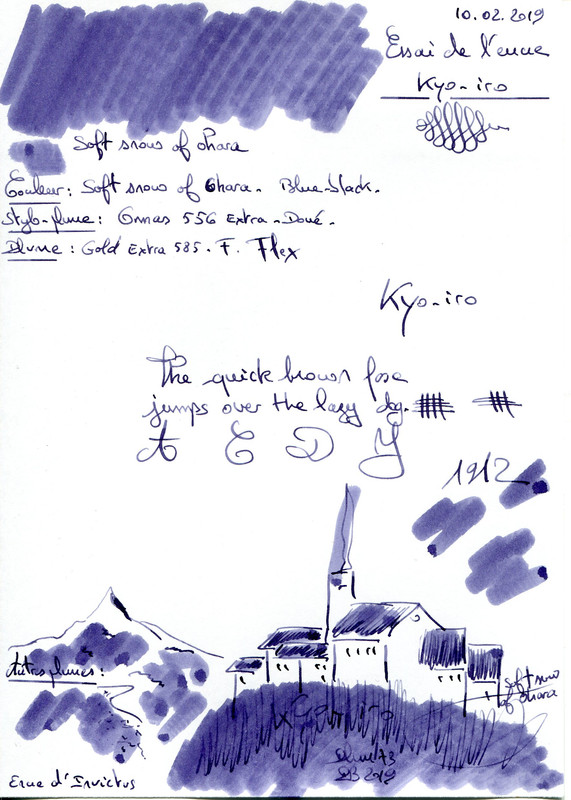 10.02.2019
Essai de l'encre
Kyo-iro
Soft snow of Ohara
Couleur : Soft snow of Ohara - Blue-black.
Stylo-plume : Omas 556 Extra - Doué.
Plume : Gold Extra 585 - F. Flex
Kyo-iro
The quick brown fox
jumps over the lazy dog.
A E D Y
1912
Autres plumes :
Soft snow
of Ohara
2019
Encre d'Invictus